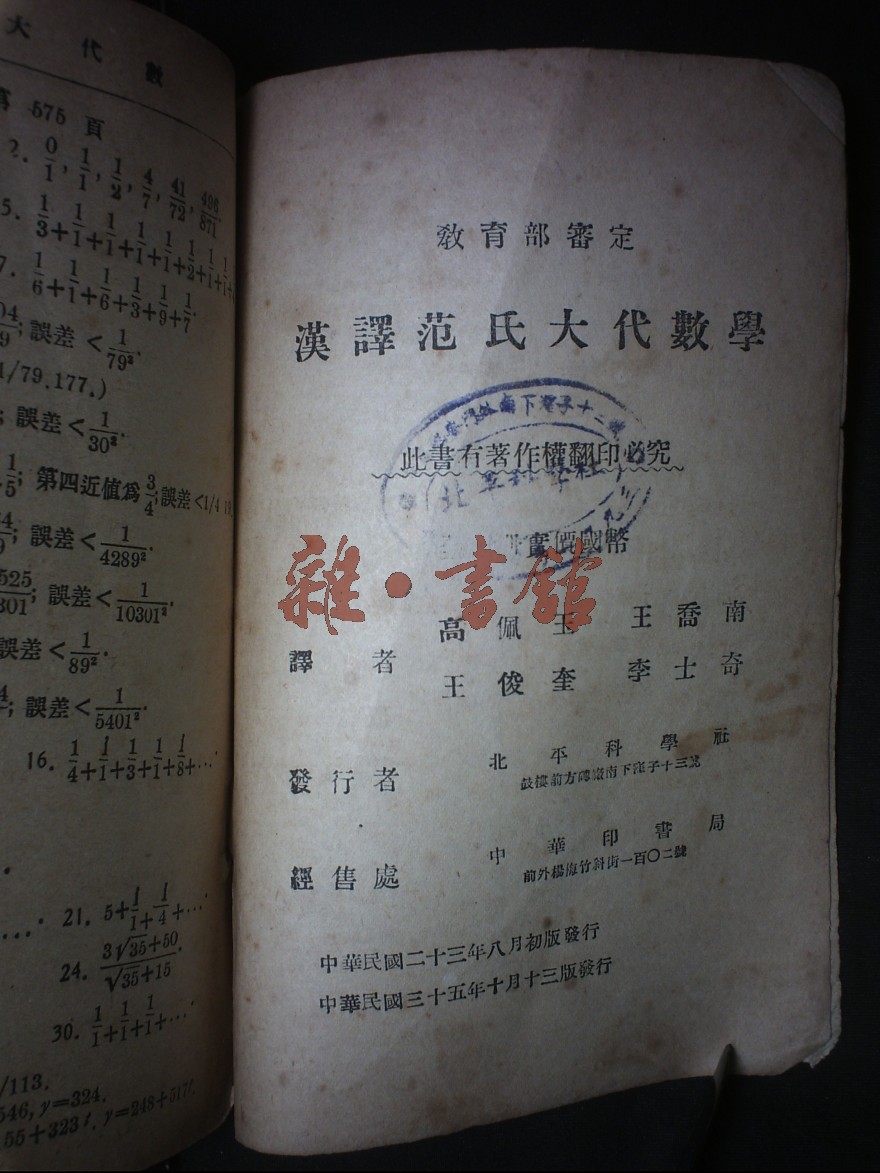 大代數
575 頁
2. 0/1, 1/1, 1/2, 4/7, 41/72, 496/871.
5. 1/3+1/1+1/1+1/1+1/1+1/2+1/1+1/1+
7. 1/6+1/1+1/6+1/3+1/9+1/7.
誤差 < 1/79².
/79.177.)
誤差 < 1/30².
第四近值爲 3/4; 誤差 <1/4
誤差 < 1/4289².
誤差 < 1/10301².
誤差 < 1/89².
誤差 < 1/5401².
16. 1/4+1/1+1/3+1/1+1/8+…
21. 5+1/1+1/4+…
24. (3√35+50)/(√35+15).
30. 1/1+1/1+1/1+…
/113.
546, y=324.
55+323t. y=248+517t.
教育部審定
漢譯范氏大代數學
此書有著作權翻印必究
實價國幣
雜·書館
譯者
高佩玉 王喬南
王俊奎 李士奇
發行者
北平科學社
鼓樓前方磚廠南下窪子十三號
經售處
中華印書局
前外楊梅竹斜街一百〇二號
中華民國二十三年八月初版發行
中華民國三十五年十月十三版發行